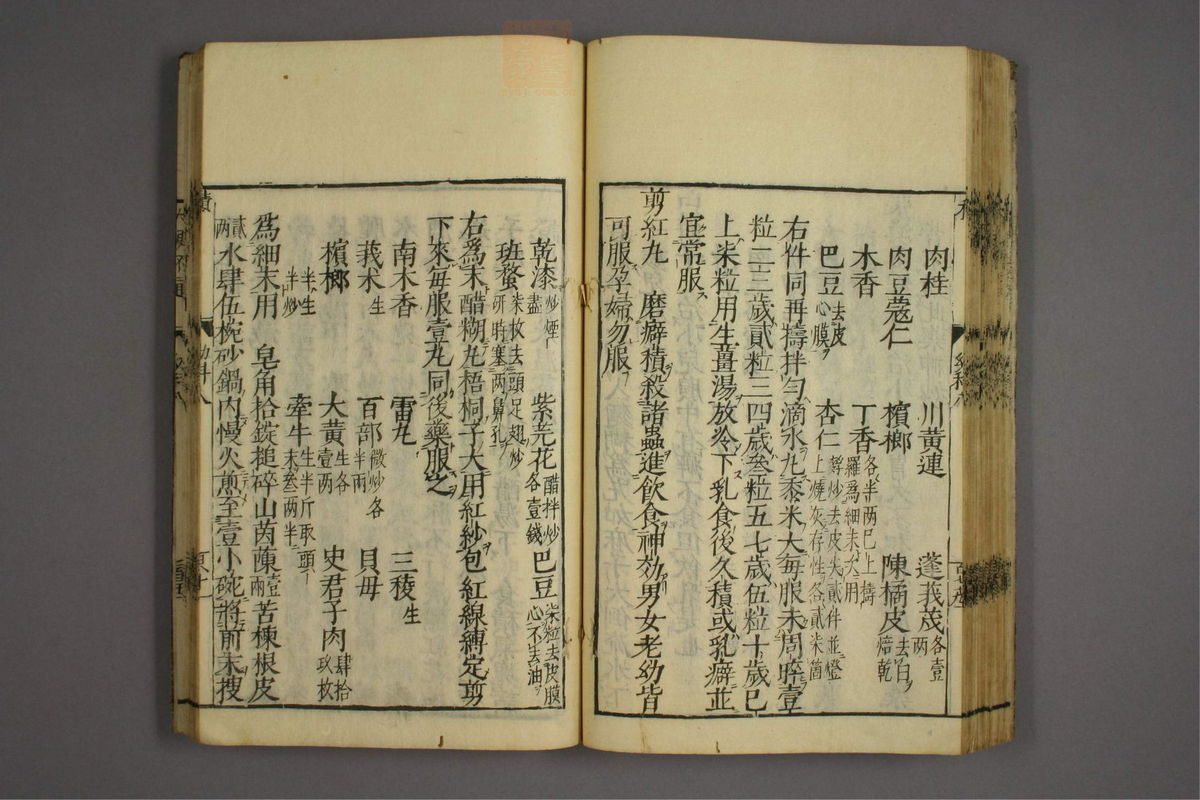 肉桂 川黃連 蓬莪茂各壹两
肉豆蔻仁 檳榔 陳橘皮去白焙乾
木香 丁香各半两已上擣羅爲細末次用
巴豆去皮心膜 杏仁
右件同再擣拌勻滴水丸黍米大每服未周晬壹
粒二三歲貳粒三四歲叁粒五七歲伍粒十歲已
上柒粒用生薑湯放冷下乳食後久積或乳癖並
宜常服
剪紅丸 磨癖積殺諸蟲進飲食神効男女老幼皆
可服孕婦勿服
乾漆炒煙盡 紫芫花醋拌炒各壹錢 巴豆柒粒去皮膜心不去油
班蝥柒枚去頭足翅炒研時塞两鼻孔
右爲末醋糊丸梧桐子大用紅紗包紅線縛定剪
下來每服壹丸同後藥服之
南木香 雷丸 三稜生
莪术生 百部微炒各半兩 貝母
檳榔半生半炒 大黃生各壹两 史君子肉肆拾玖枚
牽牛生半斤取頭末叁两半
爲細末用 皂角拾錠槌碎山茵蔯壹兩苦楝根皮
貳两水肆伍椀砂鍋內慢火煎至壹小碗將前末搜